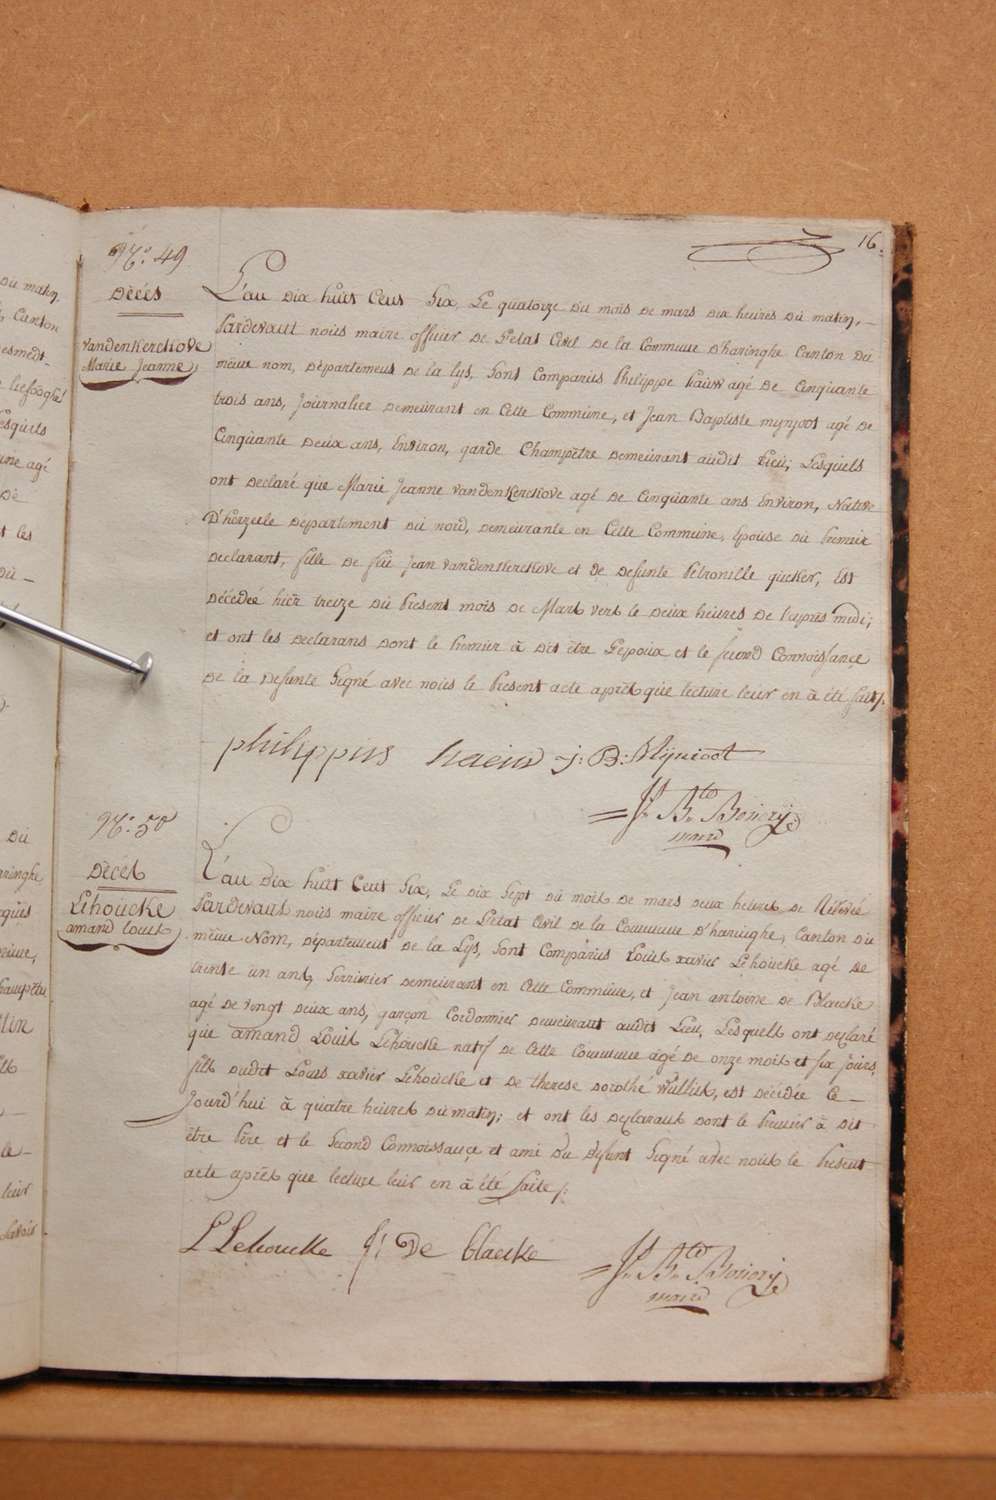 16.
N.º 49
Décés
vandenKerckove
Marie Jeanne
L'an dix huit Cent Six, Le quatorze du mois de mars dix heures du matin,
Pardevant nous maire officier de l'etat Civil de la Commune d'haringhe Canton du
même nom, département de la lys, Sont Comparus Philippe hauw agé de Cinquante
trois ans, Journalier demeurant en Cette Commune, et Jean Baptiste mynjoot agé de
Cinquante deux ans, Environ, garde Champêtre demeurant audit Lieu; Lesquels
ont declaré que Marie Jeanne vandenKerckove agé de Cinquante ans Environ, Native
D'herzeele departement du nord, demeurante en Cette Commune, Epouse du Premier
declarant, fille de fûe Jean vandenKerckove et de defunte Petronille queker, Est
décédée hier treize du Present mois de Mars vers le deux heures de l'après midi;
et ont les declarans dont le Premier à dit être l'epoux et le second Connoissance
de la defunte Signé avec nous le Present acte après que lecture leur en à été fait/.
philippus hauw j: B: Mijnjoot
J.n B.te Bonery
maire
N.º 50
Décés
Lehoucke
amand louis
L'an Dix huit Cent Six, Le dix Sept du mois de mars deux heures de Rélevée
Pardevant nous maire officier de l'etat Civil de la Commune d'haringhe, Canton du
même Nom, département de la Lys, Sont Comparus Louis xavier Lehoucke agé de
trente un ans, Serrurier demeurant en Cette Commune, et Jean antoine de Blaecke
agé de vengt deux ans, garçon Cordonnier demeurant audit Lieu, Lesquels ont declaré
que amand Louis Lehoucke natif de Cette Commune âgé de onze mois et six jours,
fils dudit Louis xavier Lehoucke et de therese dorothé Wullus, est décédée Ce
Jourd'hui à quatre heures du matin; et ont les declarant dont le Premier à dit
être Père et le Second Connoissance et ami du defunt Signé avec nous le Present
acte après que lecture leur en à été faite/.
L Lehoucke J: De blaecke
J.n B.te Bonery
maire